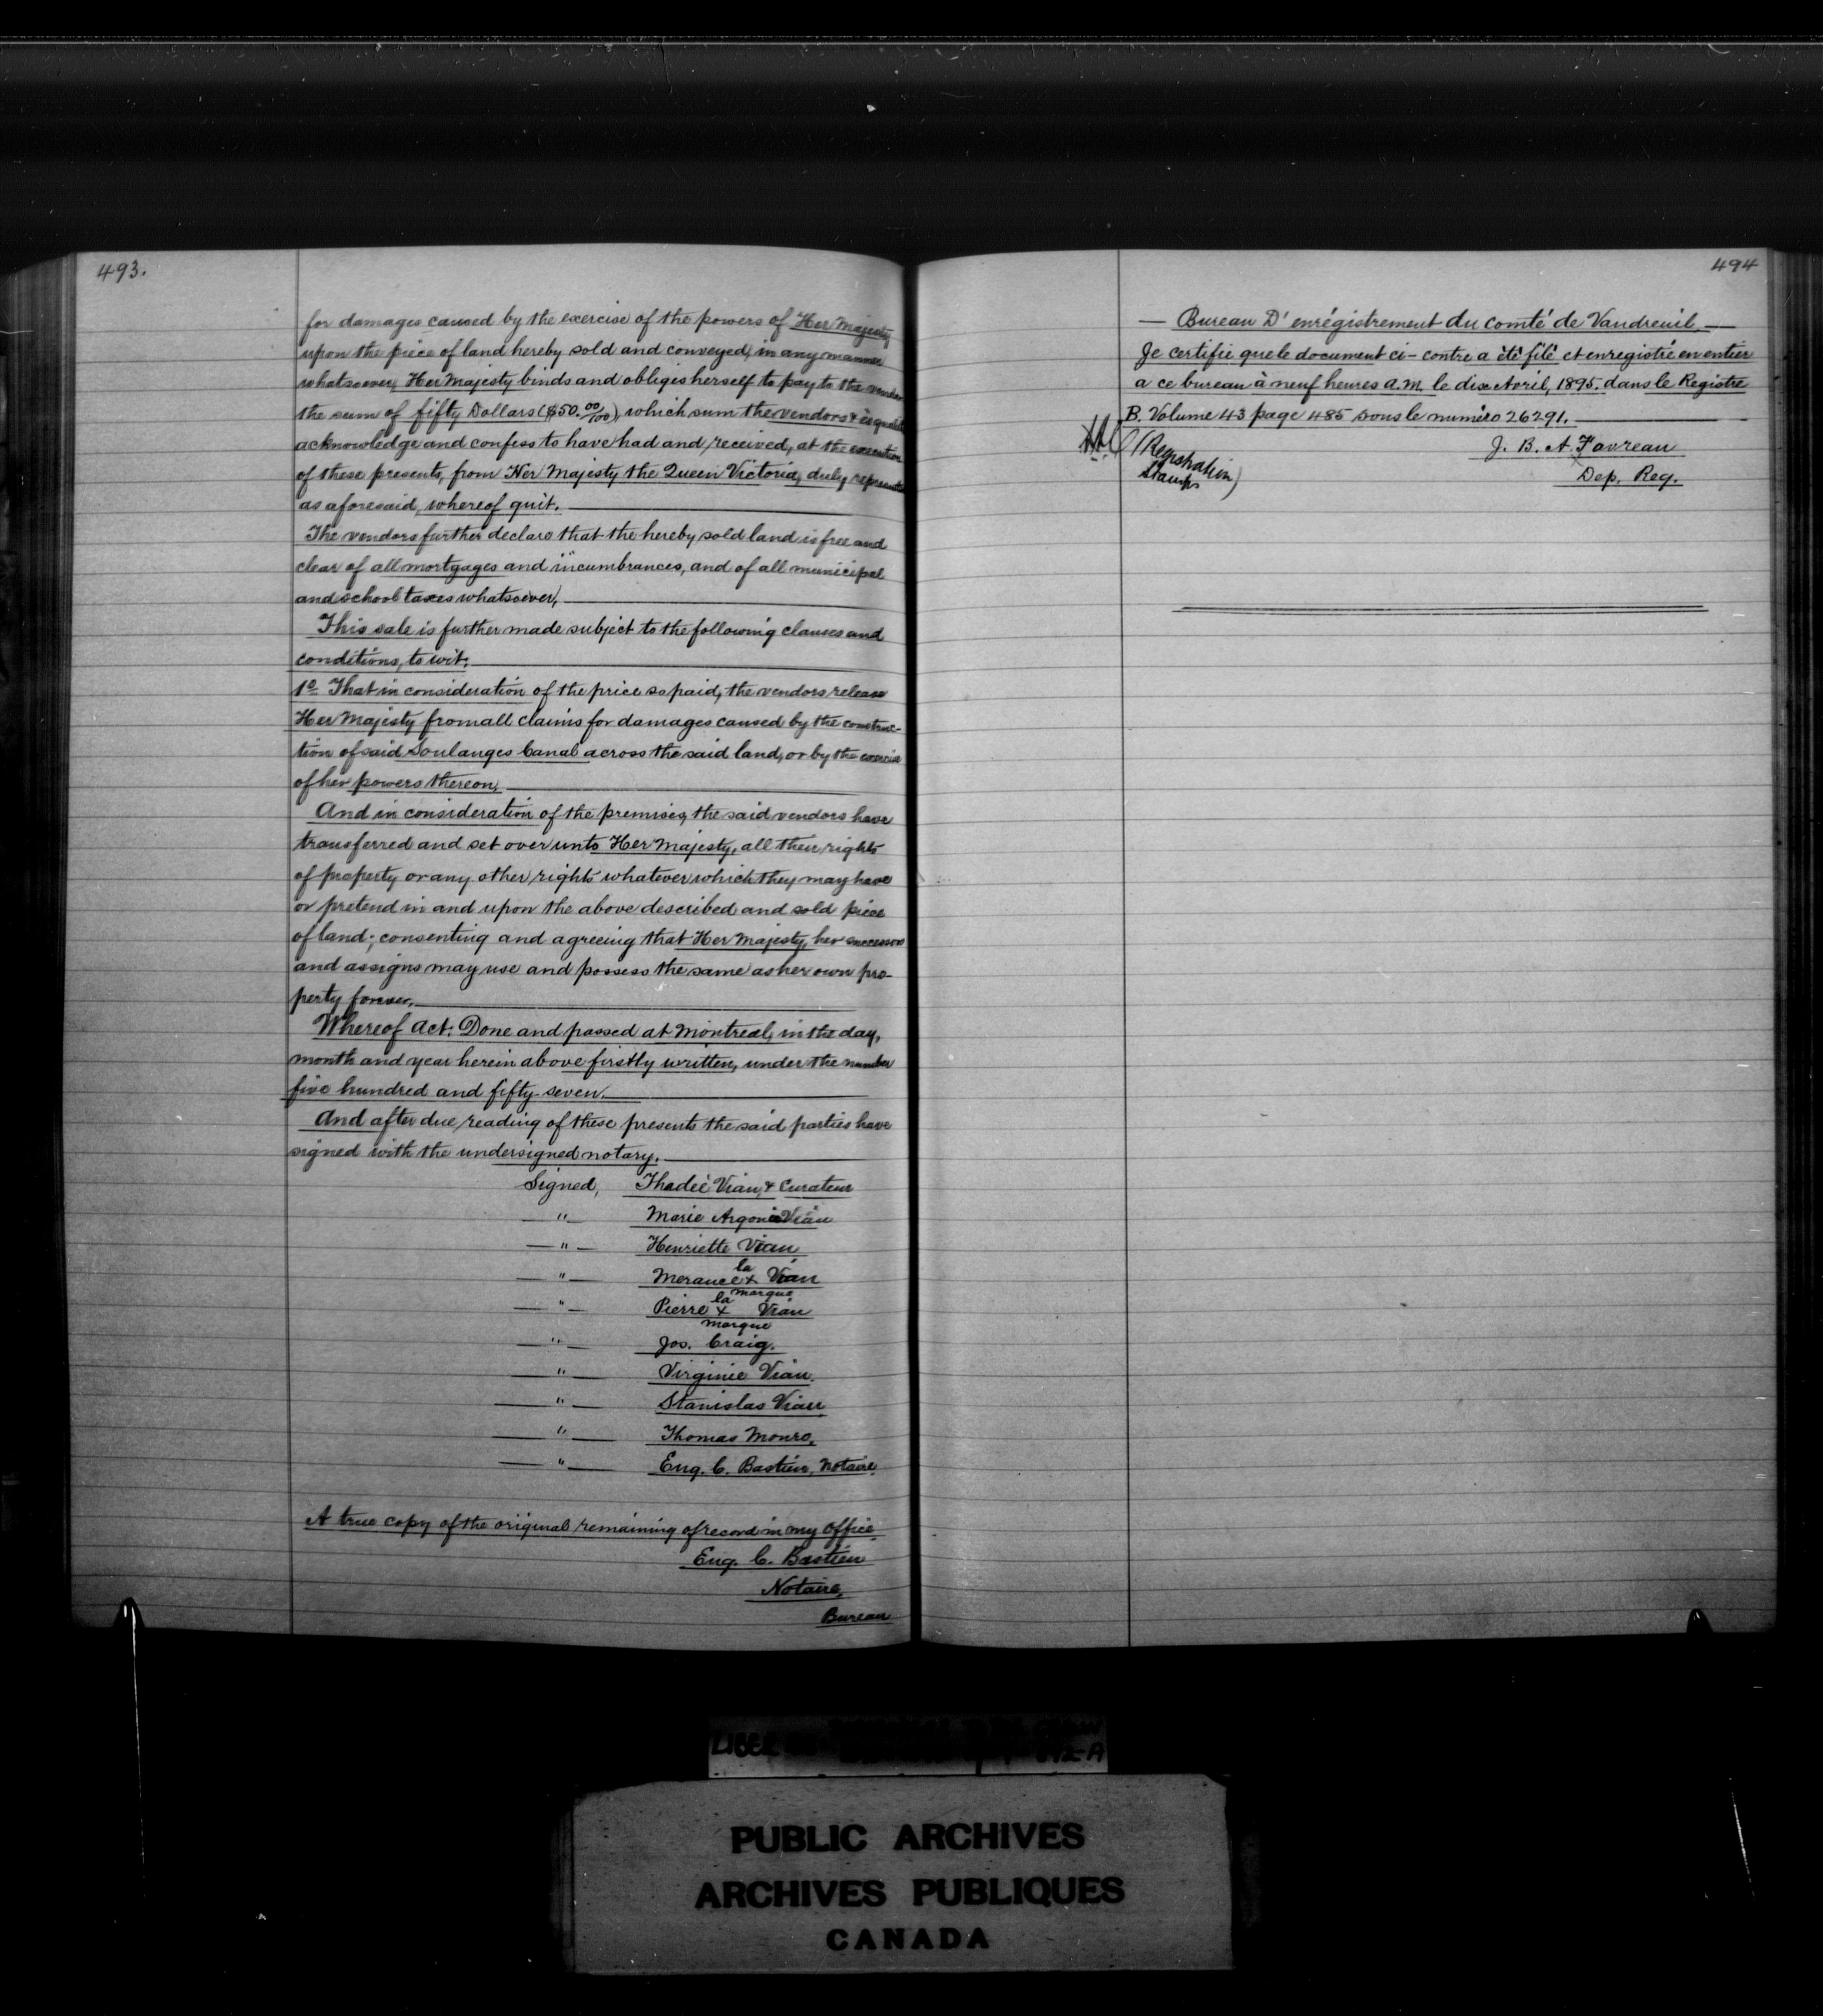 493.
for damages caused by the exercise of the powers of Her Majesty
upon the piece of land hereby sold and conveyed, in any manner
whatsoever, Her Majesty binds and obliges herself to pay to the vendor
the sum of fifty Dollars ($50.00/00), which sum the vendors & èsqualité
acknowledge and confess to have had and received, at the execution
of these presents, from Her Majesty the Queen Victoria, duly represented
as aforesaid, whereof quit.
The vendors further declare that the hereby sold land is free and
clear of all mortgages and incumbrances, and of all municipal
and school taxes whatsoever,
This sale is further made subject to the following clauses and
conditions, to wit:
1º That in consideration of the price so paid, the vendors release
Her Majesty from all claims for damages caused by the construc-
tion of said Soulanges Canal across the said land, or by the exercise
of her powers thereon,
And in consideration of the premises, the said vendors have
transferred and set over unto Her Majesty, all their rights
of property or any other rights whatever which they may have
or pretend in and upon the above described and sold piece
of land; consenting and agreeing that Her Majesty, her successors
and assigns may use and possess the same as her own pro-
perty forever.
Whereof Act: Done and passed at Montreal, in the day,
month and year herein above firstly written, under the number
five hundred and fifty-seven.
And after due reading of these presents the said parties have
signed with the undersigned notary.
Signed, Thadée Vian, & Curateur
" Marie Vian
" Henriette Vian
la
" Merance x Vian
marque
la
" Pierre x Vian
marque
" Jos. Craig.
" Virginie Vian.
" Stanislas Vian
" Thomas Monro,
" Eug. C. Bastien, Notaire.
A true copy of the original remaining of record in my Office
Eug. C. Bastien
Notaire,
Bureau
494
— Bureau D'enrégistrement du comté de Vaudreuil —
Je certifie que le document ci-contre a été filé et enregistré en entier
a ce bureau à neuf heures a.m. le dix Avril, 1895. dans le Registre
B. Volume 43 page 485 sous le numéro 26291.
J. B. A. Favreau
Dep. Reg.
(Registration
Stamps)
PUBLIC ARCHIVES
ARCHIVES PUBLIQUES
CANADA